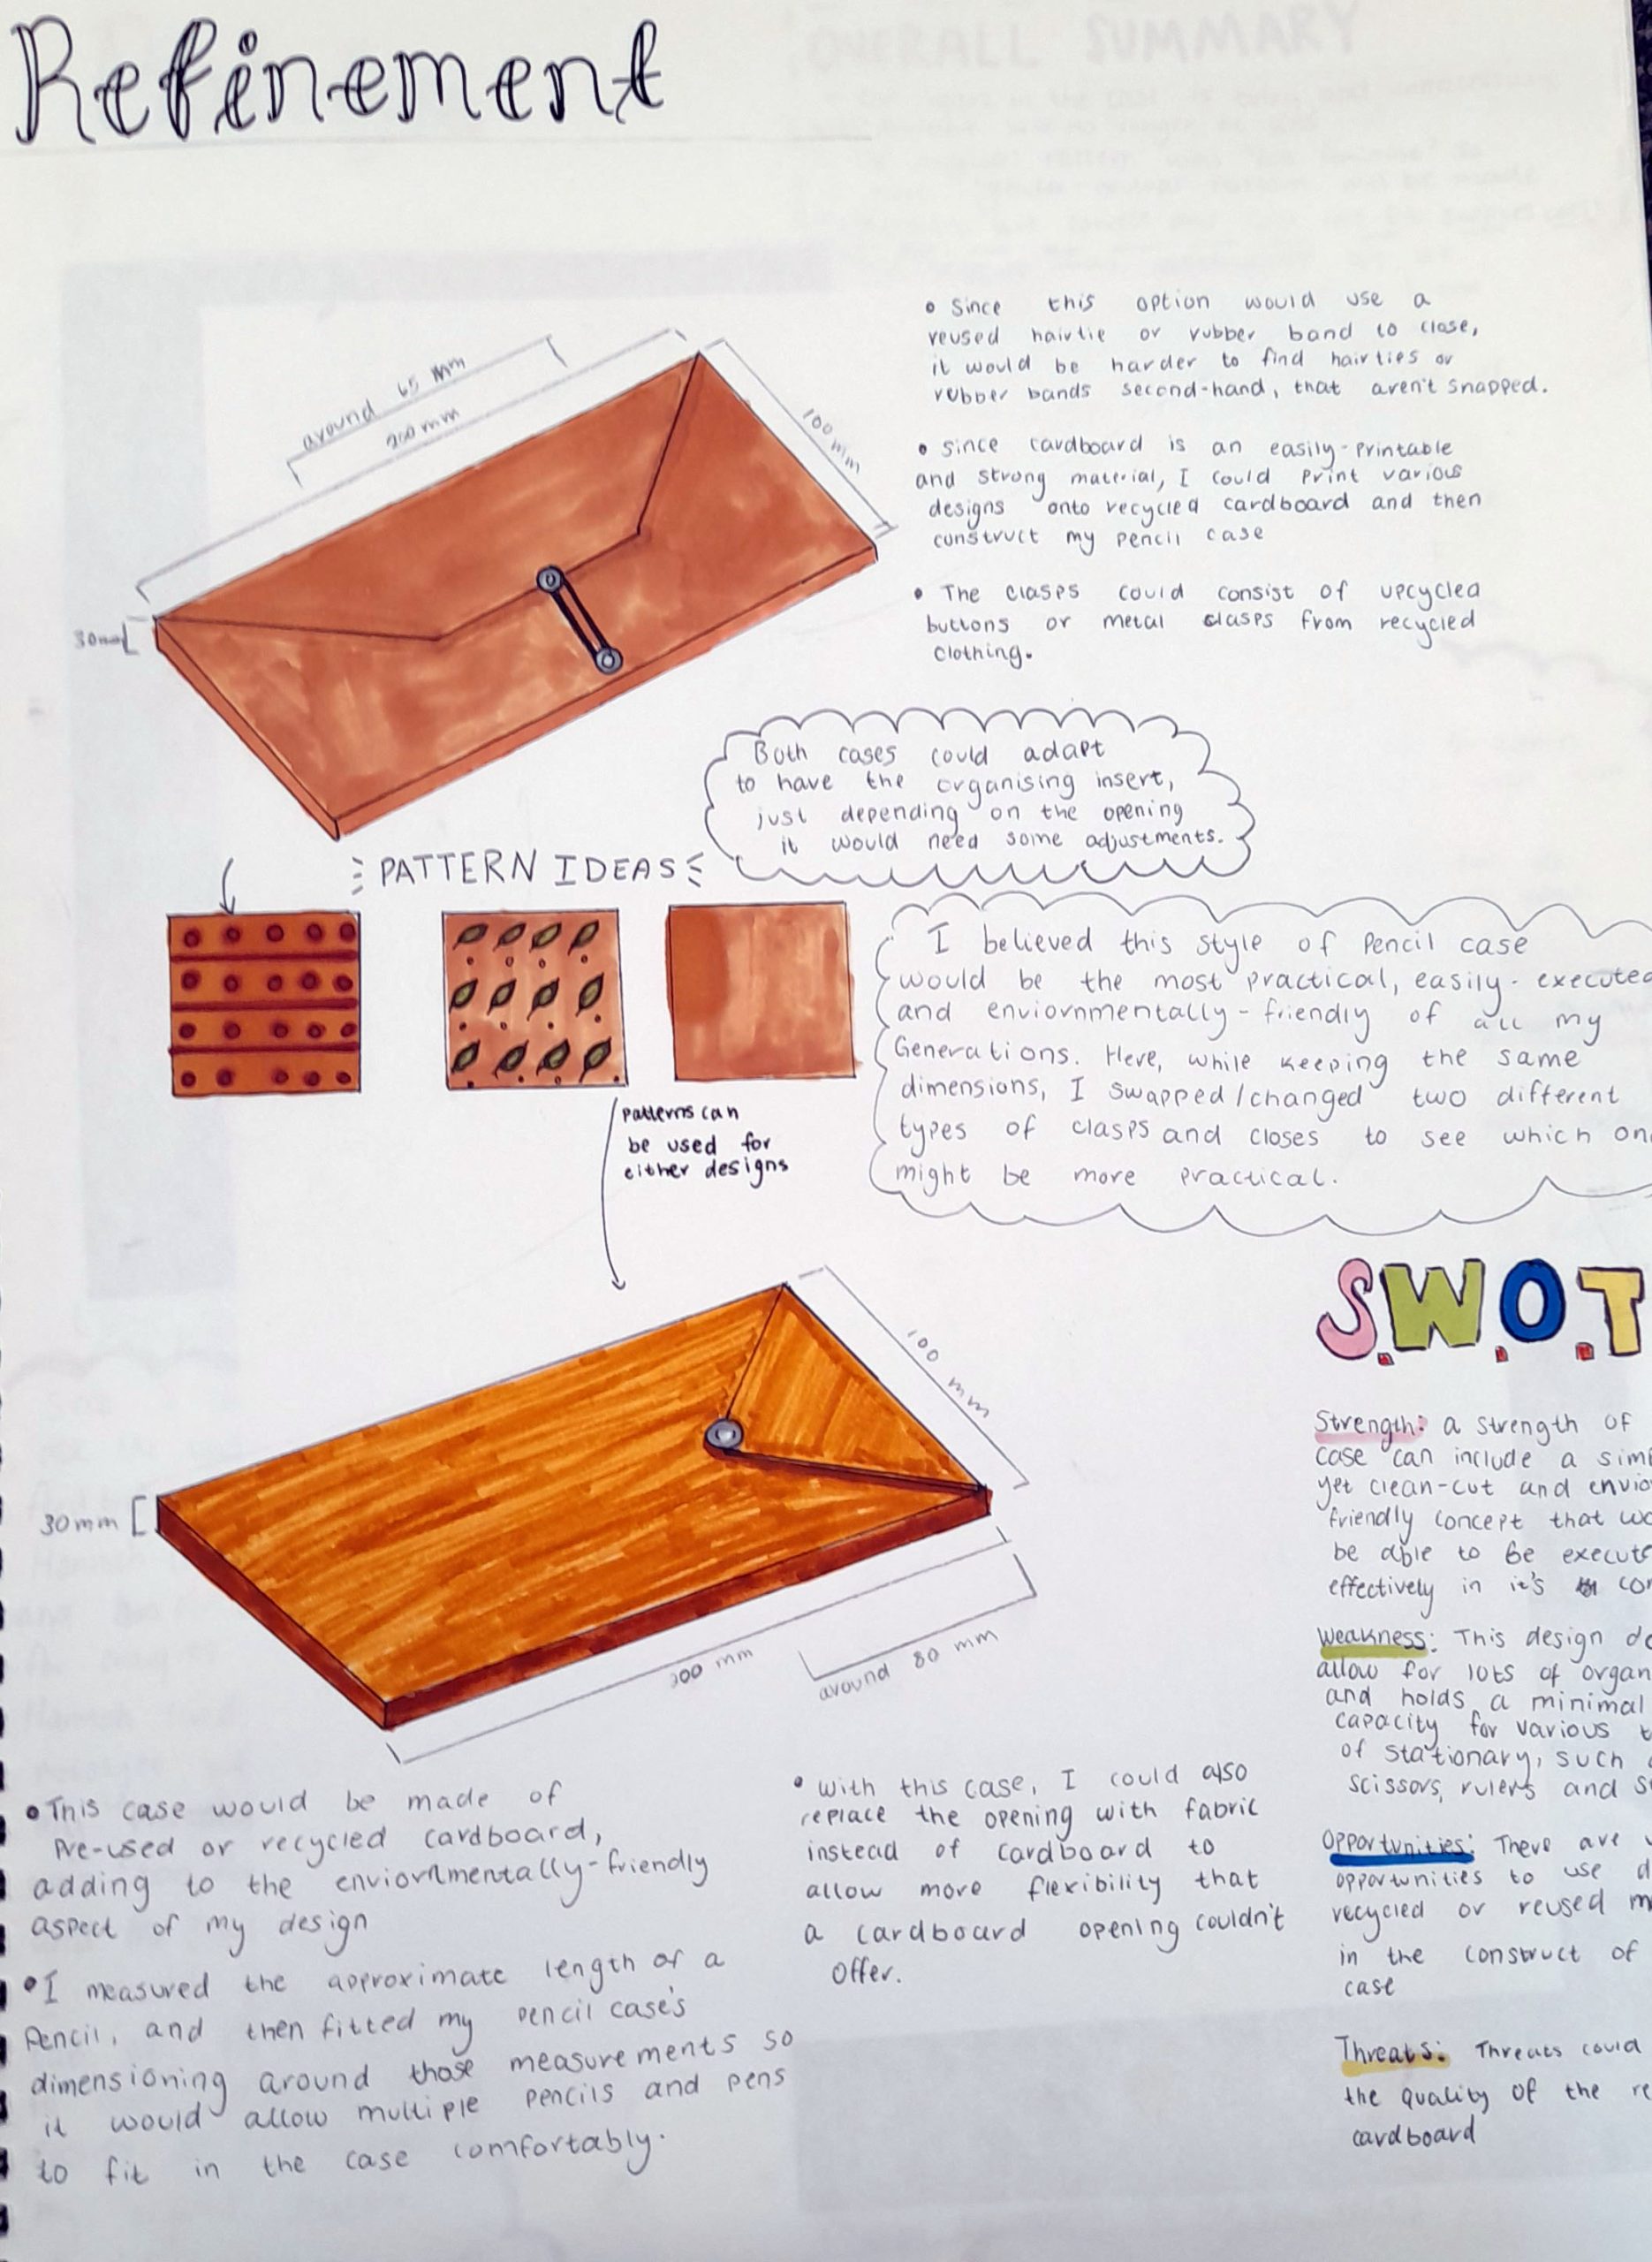 Refinement
around 65 mm
200 mm
100 mm
30mm
• Since this option would use a
reused hairtie or rubber band to close,
it would be harder to find hairties or
rubber bands second-hand, that aren't snapped.
• Since cardboard is an easily-printable
and strong material, I could print various
designs onto recycled cardboard and then
construct my pencil case
• The clasps could consist of upcycled
buttons or metal clasps from recycled
clothing.
Both cases could adapt
to have the organising insert,
just depending on the opening
it would need some adjustments.
PATTERN IDEAS
patterns can
be used for
either designs
I believed this style of pencil case
would be the most practical, easily-executed
and enviornmentally-friendly of all my
Generations. Here, while keeping the same
dimensions, I swapped/changed two different
types of clasps and closes to see which on
might be more practical.
100 mm
30mm
200 mm
around 80 mm
• This case would be made of
Pre-used or recycled cardboard,
adding to the enviornmentally-friendly
aspect of my design
• I measured the approximate length of a
Pencil, and then fitted my pencil case's
dimensioning around those measurements so
it would allow multiple pencils and pens
to fit in the case comfortably.
• With this case, I could also
replace the opening with fabric
instead of cardboard to
allow more flexibility that
a cardboard opening couldn't
offer.
S.W.O.T
Strength: a strength of
case can include a sim
yet clean-cut and envio
friendly concept that wo
be able to be execute
effectively in it's con
Weakness: This design do
allow for lots of organ
and holds a minimal
capacity for various t
of stationary, such
scissors, rulers and s
Opportunities: There are
opportunities to use d
recycled or reused m
in the construct of
case
Threats: Threats could
the quality of the re
cardboard